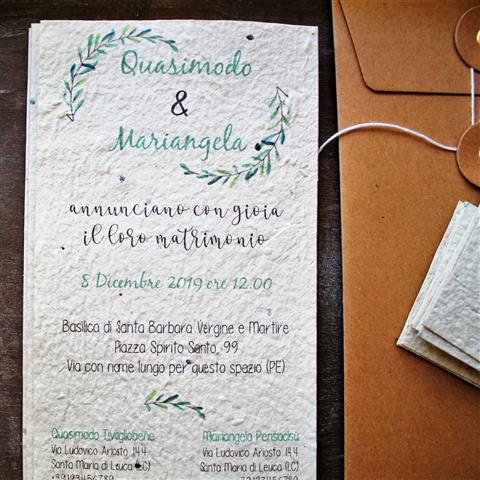 Quasimodo
&
Mariangela
annunciano con gioia
il loro matrimonio
8 Dicembre 2019 ore 12.00
Basilica di Santa Barbara Vergine e Martire
Piazza Spirito Santo, 99
Via con nome lungo per questo spazio (PE)
Quasimodo Tivogliobene Mariangela Pensacisu
Via Ludovico Ariosto 144 Via Ludovico Ariosto 144
Santa Maria di Leuca (LC) Santa Maria di Leuca (LC)
+39123456789 +39123456789